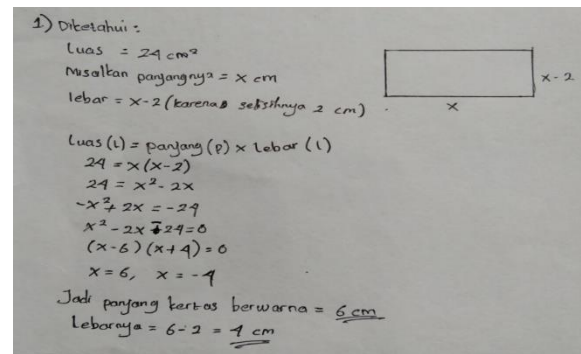 1) Diketahui :
Luas = 24 cm²
Misalkan panjangnya = x cm
lebar = x-2 (karena selisihnya 2 cm)
x - 2
x
Luas (L) = panjang (p) x Lebar (l)
24 = x (x-2)
24 = x² - 2x
-x² + 2x = -24
x² - 2x - 24 = 0
(x-6) (x+4) = 0
x = 6, x = -4
Jadi panjang kertas berwarna = 6 cm
Lebarnya = 6-2 = 4 cm